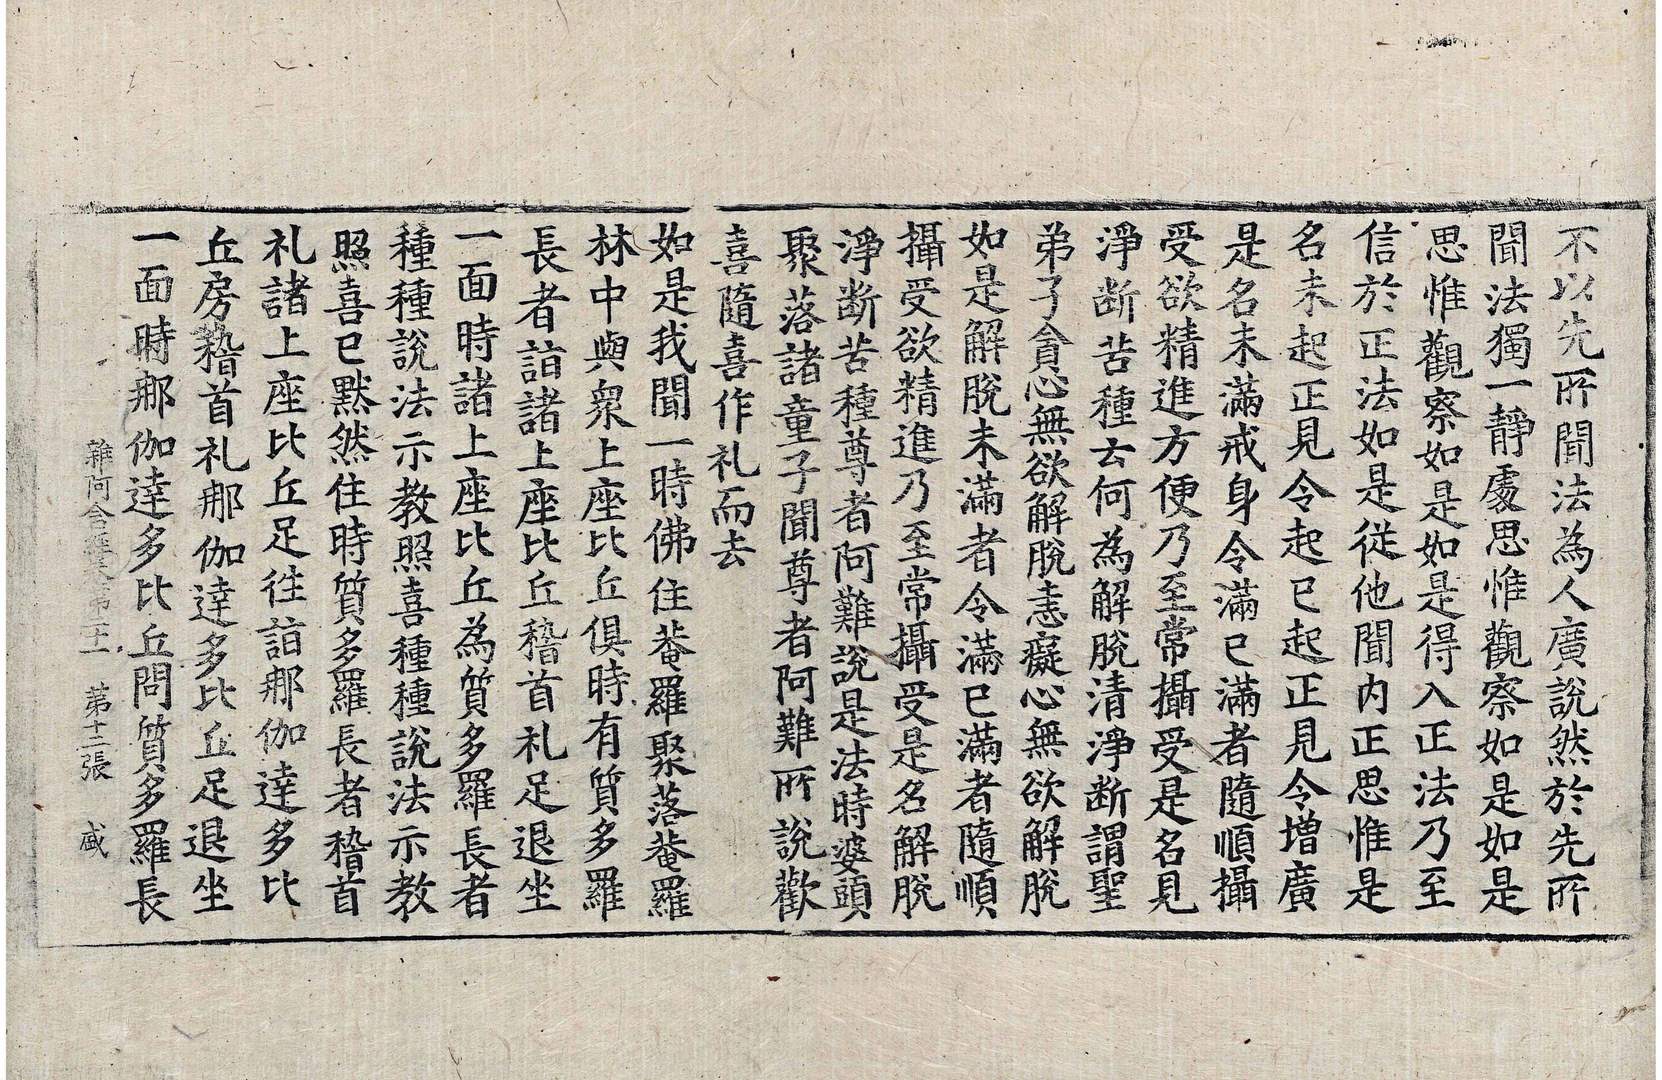 不以先所聞法為人廣說然於先所
聞法獨一靜處思惟觀察如是如是
思惟觀察如是如是得入正法乃至
信於正法如是從他聞内正思惟是
名未起正見令起已起正見令增廣
是名未滿戒身令滿已滿者隨順攝
受欲精進方便乃至常攝受是名見
淨断苦種云何為解脫清淨断謂聖
弟子貪心無欲解脫恚癡心無欲解脫
如是解脫未滿者令滿已滿者隨順
攝受欲精進乃至常攝受是名解脫
淨断苦種尊者阿難說是法時婆頭
聚落諸童子聞尊者阿難所說歡
喜隨喜作礼而去
如是我聞一時佛住菴羅聚落菴羅
林中與衆上座比丘俱時有質多羅
長者詣諸上座比丘稽首礼足退坐
一面時諸上座比丘為質多羅長者
種種說法示教照喜種種說法示教
照喜已默然住時質多羅長者稽首
礼諸上座比丘足往詣那伽達多比
丘房稽首礼那伽達多比丘足退坐
一面時那伽達多比丘問質多羅長
雜阿含經卷第二十一 第十二張 盛